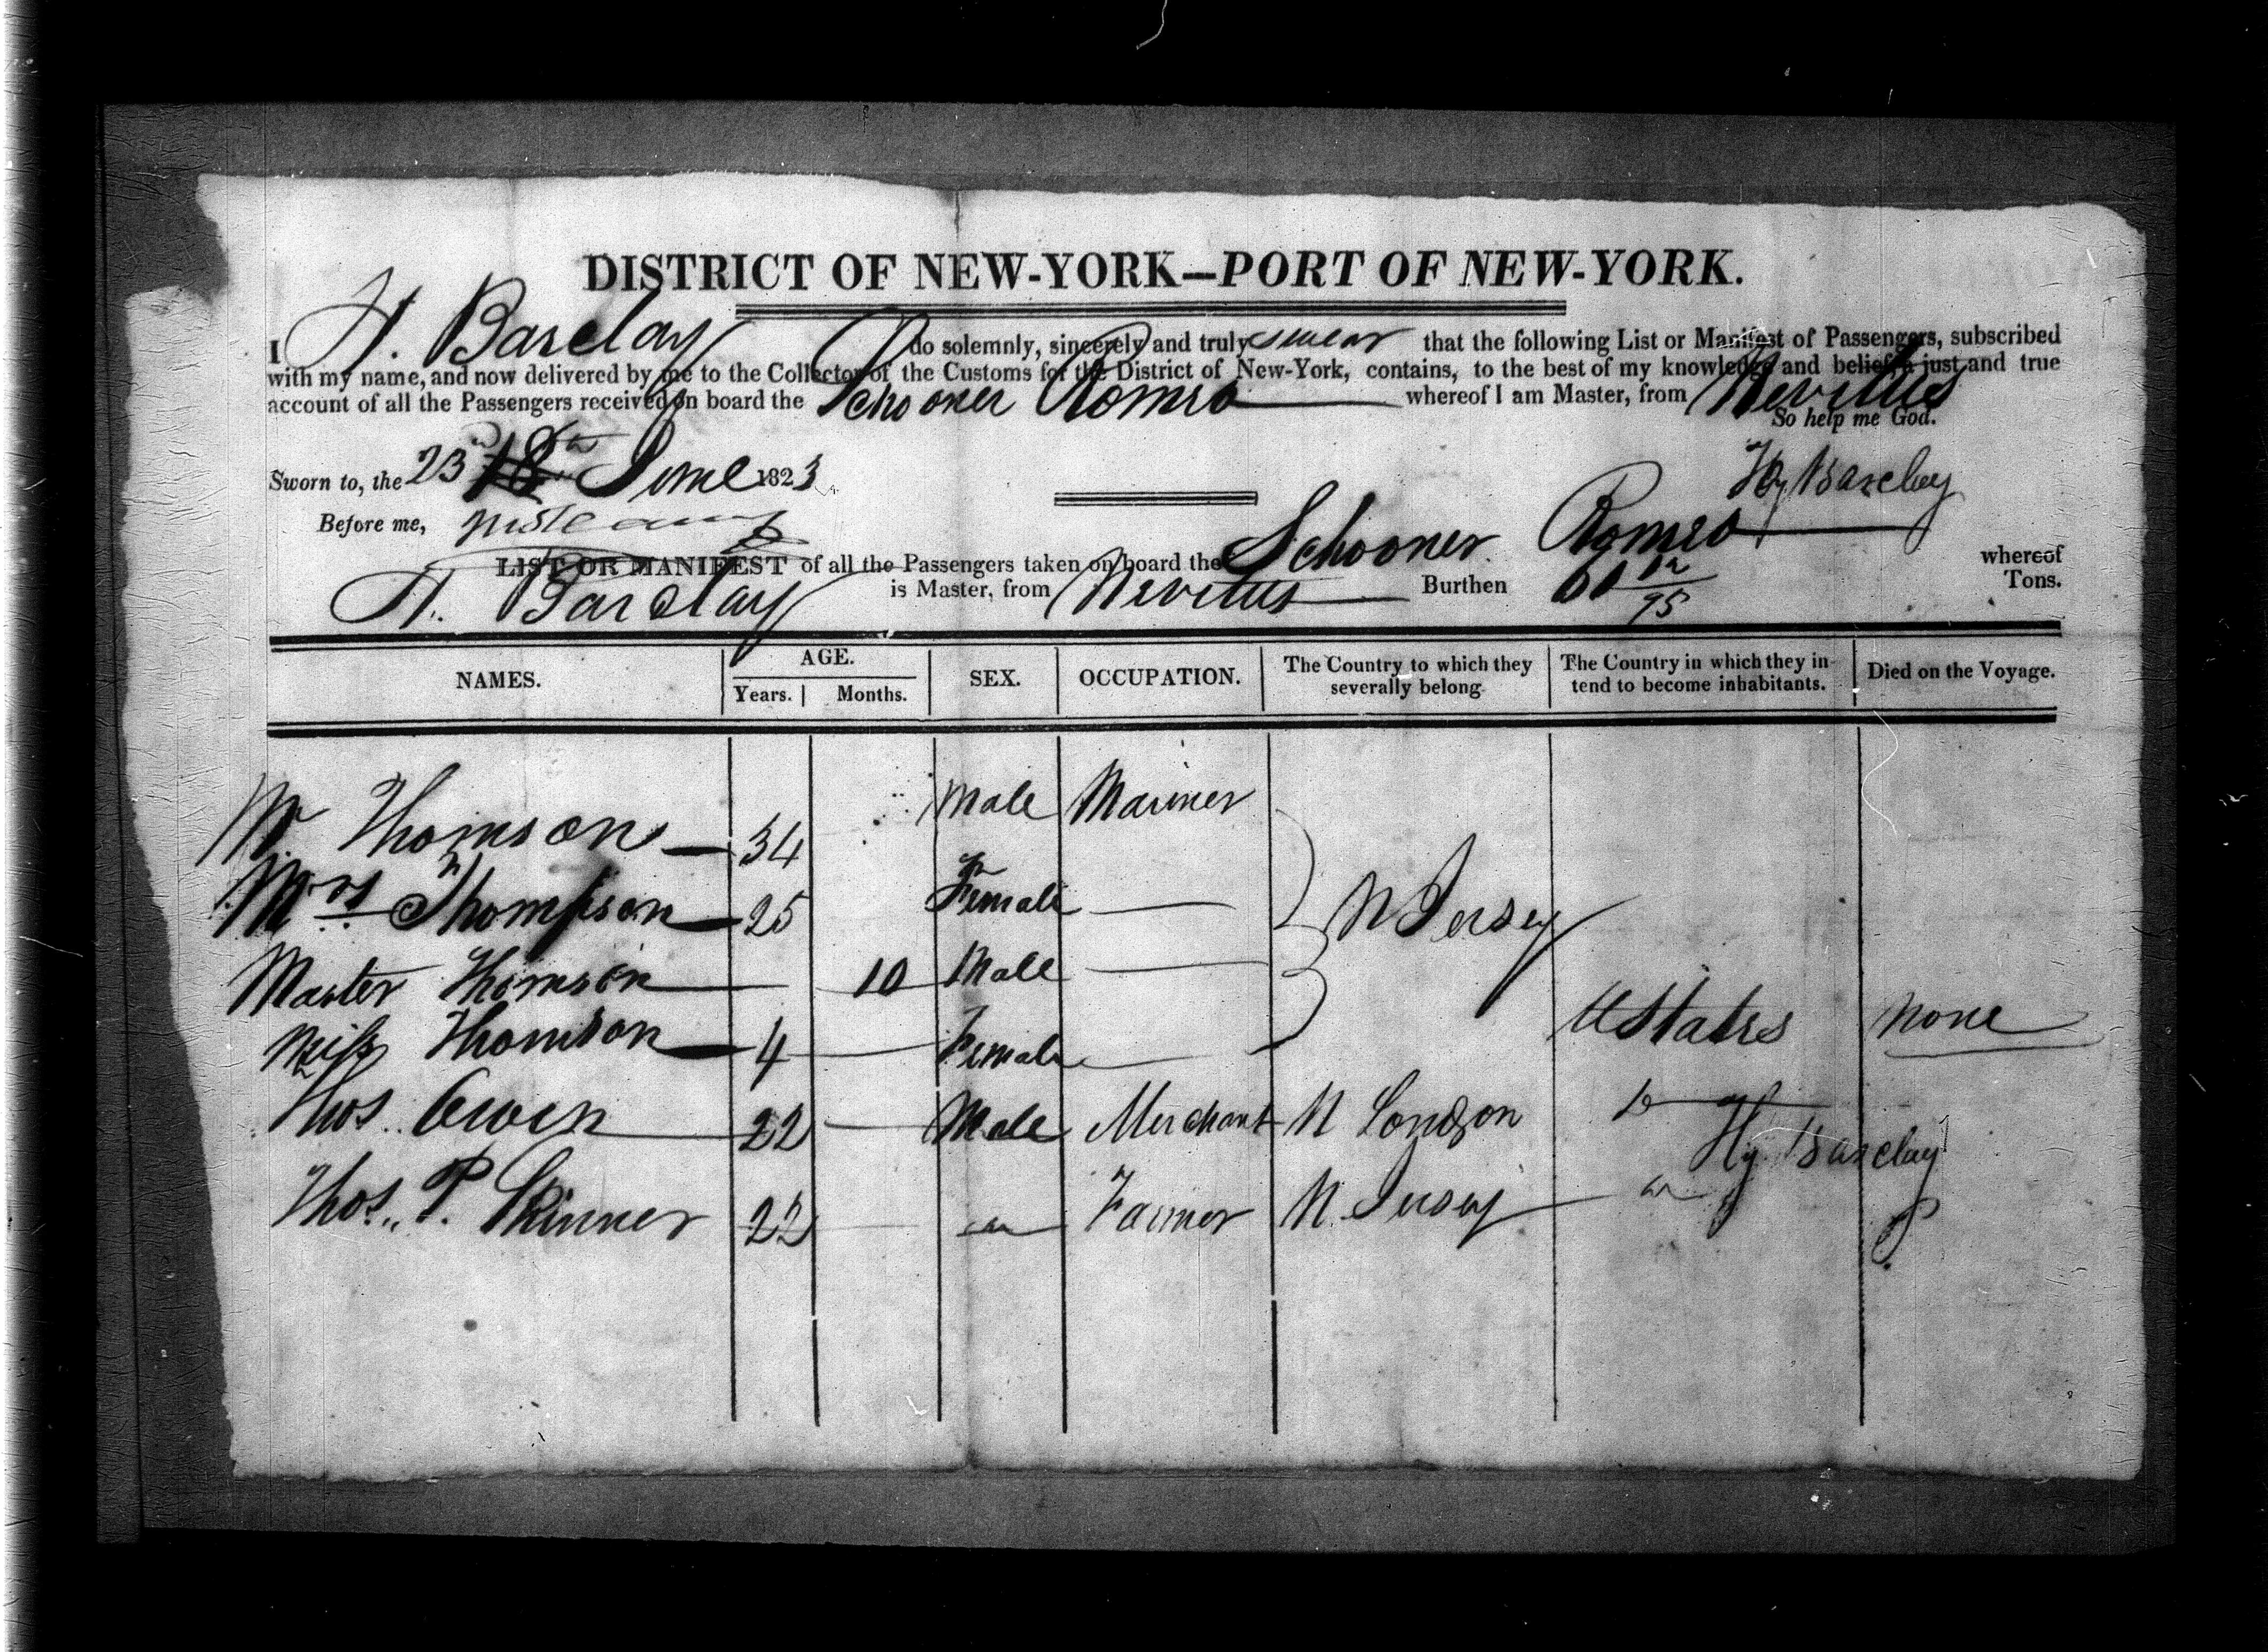 DISTRICT OF NEW-YORK—PORT OF NEW-YORK.
I H. Barclay do solemnly, sincerely and truly swear that the following List or Manifest of Passengers, subscribed
with my name, and now delivered by me to the Collector of the Customs for the District of New-York, contains, to the best of my knowledge and belief, a just and true
account of all the Passengers received on board the Schooner Romeo whereof I am Master, from Nevitus
So help me God.
Sworn to, the 23 18th June 1823
Hy Barclay
Before me,
LIST OR MANIFEST of all the Passengers taken on board the Schooner Romeo whereof
H. Barclay is Master, from Nevitus Burthen 61 12/95 Tons.
NAMES. AGE. Years. Months. SEX. OCCUPATION. The Country to which they severally belong. The Country in which they intend to become inhabitants. Died on the Voyage.
Mr Thomson 34 Male Mariner
Mrs Thompson 25 Female — N Jersey
Master Thomson 10 Male —
Miss Thomson 4 — Female — U States None
Thos. Owen 22 — Male Merchant N London
Hy Barclay
Thos. P. Skinner 22 — Farmer N. Jersey